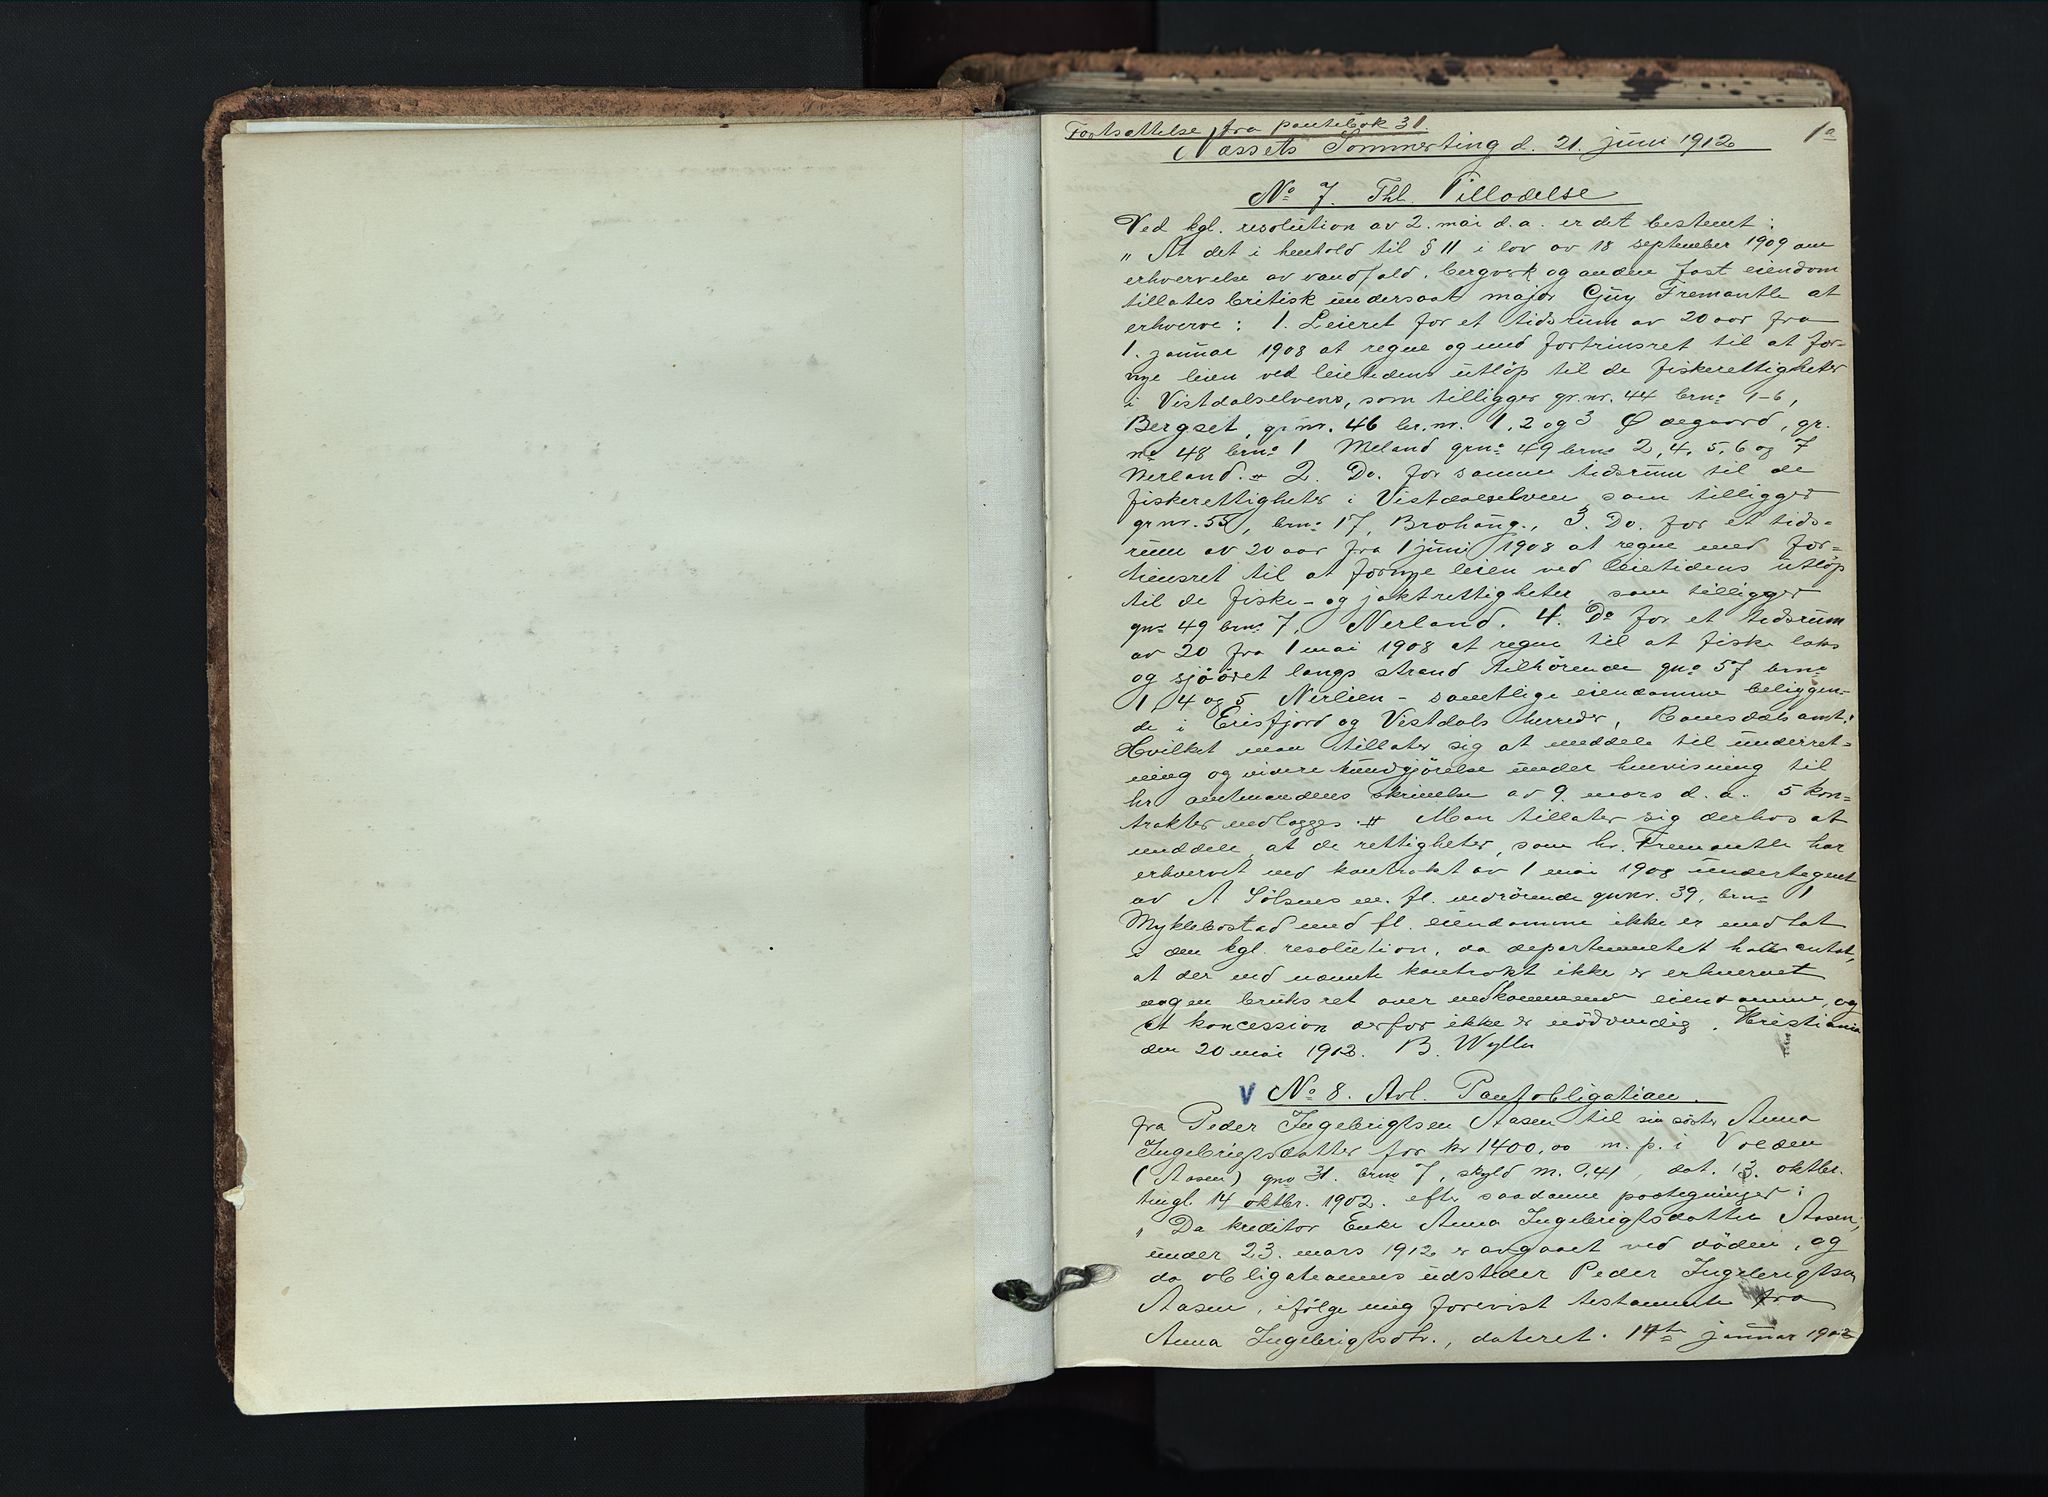 Fortsættelse fra pantebok 31.
1a
Næssets Sommerting d. 21. juni 1912
No 7. Thl. Tilladelse
Ved kgl. resolution av 2. mai d.a. er det bestemt:
„At det i henhold til § 11 i lov av 18 september 1909 om
erhvervelse av vandfald, bergverk og anden fast eiendom
tillates britisk undersaat major Guy Fremantle at
erhverve: 1. Leieret for et tidsrum av 20 aar fra
1. januar 1908 at regne og med fortrinsret til at for-
nye leien ved leietidens utløp til de fiskerettigheter
i Vistdalselven, som tilligger gr.nr. 44 brno 1-6,
Bergset, gr.nr. 46 br.nr. 1, 2 og 3 Ødegaard, gr.
no 48 brno 1 Meland grno 49 brno 2, 4, 5, 6 og 7
Nerland. 2. Do. for samme tidsrum til de
fiskerettigheter i Vistdalselven som tilligger
gr.nr. 55, brno 17, Brohaug., 3. Do. for et tids-
rum av 20 aar fra 1 juni 1908 at regne med for-
trinsret til at fornye leien ved leietidens utløp
til de fiske- og jaktrettigheter, som tilligger
gno 49 brno 7, Nerland. 4. Do for et tidsrum
av 20 fra 1 mai 1908 at regne til at fiske laks
og sjøöret langs strand tilhørende gno 57 brno
1, 4 og 5 Nerlien - samtlige eiendomme beliggen-
de i Erisfjord og Vistdals herreder, Romsdals amt.
Hvilket man tillater sig at meddele til underret-
ning og videre kundgjørelse under henvisning til
hr amtmandens skrivelse av 9. mars d. a. 5 kon-
trakter vedlægges. # Man tillater sig derhos at
meddele, at de rettigheter, som hr. Fremantle har
erhvervet ved kontrakt av 1 mai 1908 undertegnet
av A Sølsnes m. fl. vedrörende gr.nr. 39, brno 1
Myklebostad med fl. eiendomme ikke er medtat
i den kgl. resolution, da departementet har antat,
at der ved nævnte kontrakt ikke er erhvervet
nogen bruksret over vedkommende eiendomme, og
at koncession derfor ikke er nödvendig. Kristiania
den 20 mai 1912. B. Wyller
V No 8. Avl. Pantobligation.
fra Peder Ingebrigtsen Aasen til sin søster Anna
Ingebrigtsdatter for kr 1400,00 m. p. i Volden
(Aasen) gno 31. brno 7, skyld m. 0,41, dat. 13. oktbr.
tingl. 14 oktbr. 1902. efter saadanne paategninger:
„Da kreditor Enke Anna Ingebrigtsdatter Aasen,
under 23. mars 1912 er avgaaet ved döden, og
da obligationens udsteder Peder Ingebrigtsen
Aasen, ifölge mig forevist testamente fra
Anna Ingebrigtsdtr., dateret. 14te januar